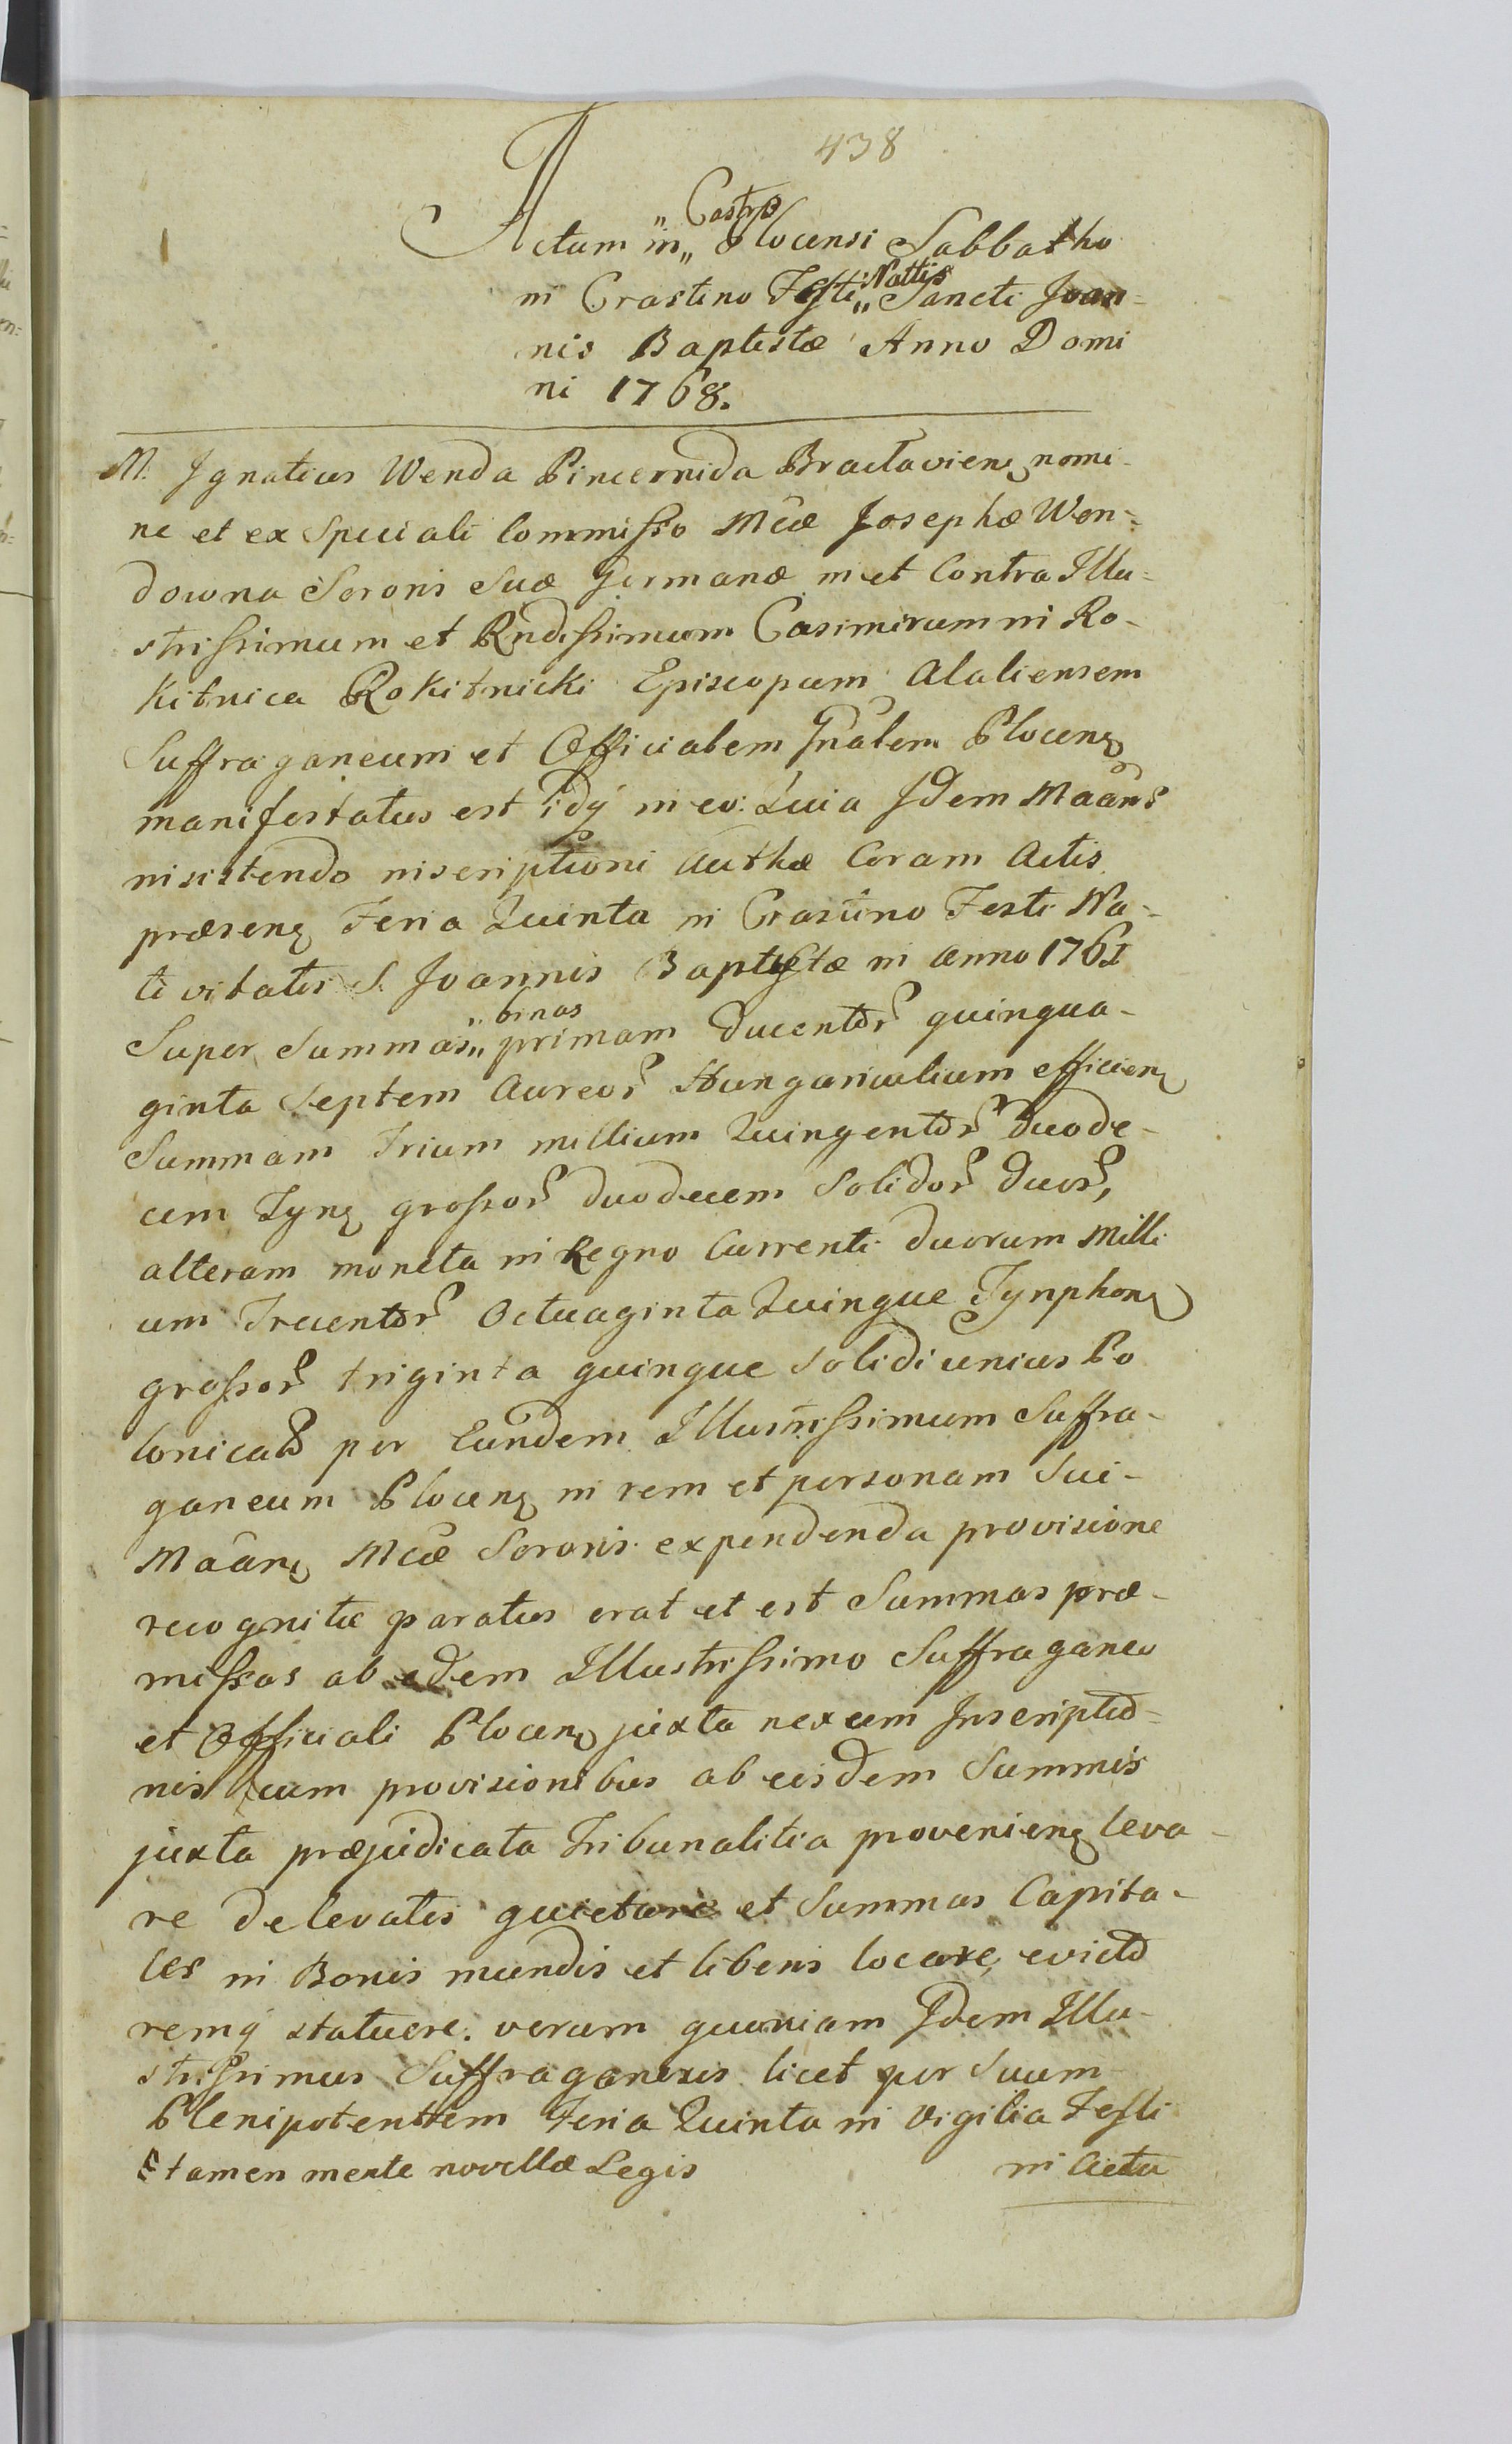 438
Actum in „Castro„ Plocensi Sabbatho
in Crastino Festi „Nattis„ Sancti Joan=
nis Baptistæ Anno Domi
ni 1768.
M. Ignatius Wenda Pincernida Braclaviens nomi-
ne et ex Speciali Commisso Mcæ Josephæ Wen=
downa Sororis Suæ Germanæ in et Contra Illu=
strissimum et Rndissimum Casimirum in Ro-
kitnica Rokitnicki Episcopum Alaliensem
Suffraganeum et Officialem Gnalem Plocens
manifestatus est idq in eo: Quia Idem Maans
insistendo inscriptioni Authæ Coram Actis
præsens Feria Quinta in Crastino Festi Na-
tivitatis S. Joannis Baptistæ in Anno 1761
Super Summas „binas„ primam Ducentor quinqua-
ginta Septem Aureor Hungaricalium efficiens
Summam trium millium Quingentor Duode-
cim Tyns grossor duodecem Solidor duor,
alteram moneta in Regno Currenti duorum Milli
um Trecentor Octuaginta Quinque Tynphons
grossor triginta quinque Solidi unius Po
lonical per Eundem Illustrissimum Suffra-
ganeum Plocens in rem et personam Sui-
Maans Mcæ Sororis expendenda provisione
recognitæ paratus erat et est Summas præ-
missas ab edem Illustrissimo Suffraganeo
et Officiali Plocens juxta nexum Inscriptio=
nis cum provisionibus ab eisdem Summis
juxta præjudicata Tribunalitia proveniens leva-
re de levatis quietare et Summas Capita-
les in Bonis mundis et liberis locare, evicto
remq statuere. verum quoniam Idem Illu-
strissimus Suffraganeus licet per Suum
Plenipotentem Feria Quinta in Vigilia Festi
tamen mente novellæ Legis in Actu